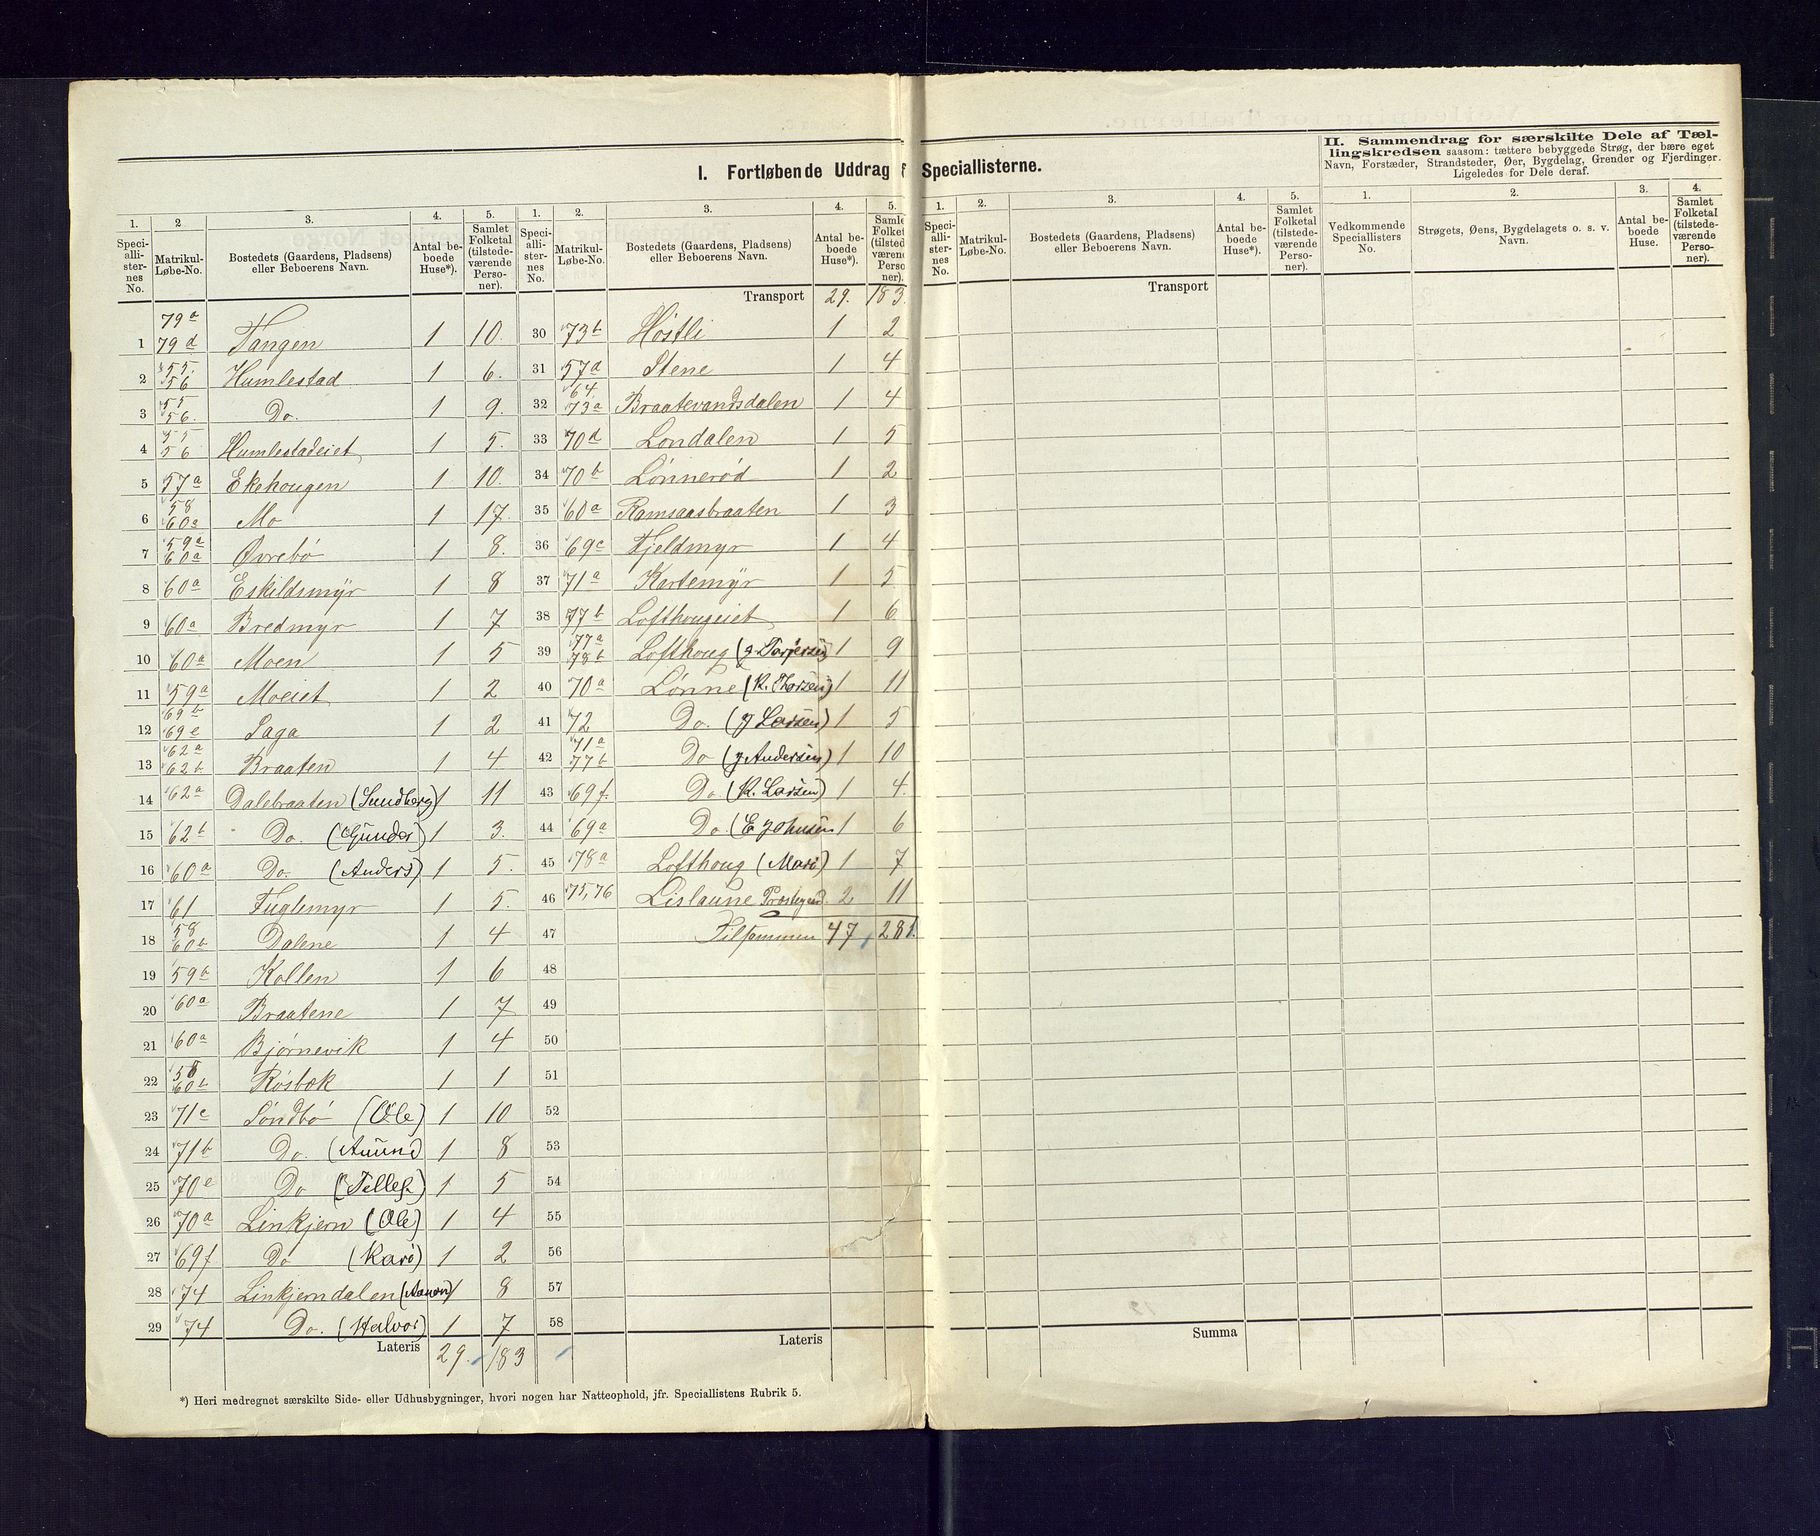 I. Fortløbende Uddrag f Speciallisterne.
II. Sammendrag for særskilte Dele af Tæl-
lingskredsen saasom: tættere bebyggede Strøg, der bære eget
Navn, Forstæder, Strandsteder, Øer, Bygdelag, Grender og Fjerdinger.
Ligeledes for Dele deraf.
1. 2 3. 4. 5. 1. 2. 3. 4. 5. 1. 2. 3. 4. 5. 1. 2. 3. 4.
Speci-alli-ster-nes No. Matrikul-Løbe-No. Bostedets (Gaardens, Pladsens) eller Beboerens Navn. Antal be-boede Huse*). Samlet Folketal (tilstede-værende Perso-ner).
Speci-alli-ster-nes No. Matrikul-Løbe-No. Bostedets (Gaardens, Pladsens) eller Beboerens Navn. Antal be-boede Huse*). Samlet Folket (tilstede-værend Perso ner).
Speci-alli-ster-nes No. Matrikul-Løbe-No. Bostedets (Gaardens, Pladsens) eller Beboerens Navn. Antal be-boede Huse*). Samlet Folketal (tilstede-værende Perso-ner).
Vedkommende Speciallisters No. Strøgets, Øens, Bygdelagets o. s. v. Navn. Antal be-boede Huse. Samlet Folketal (tilstede-værende Perso-ner).
1 79a 79d Tangen 1 10.
2 55. 56 Humlestad 1 6.
3 55 56. Do. 1 9.
4 55 56 Humlestadeiet 1 5.
5 57a Ekehougen 1 10.
6 58 60a Mo 1 17.
7 59a 60a Øvrebö 1 8.
8 60a Eskildsmÿr 1 8
9 60a Bredmyr 1 7
10 60a Moen 1 5
11 59a Moeiet 1 2
12 69b 69e Saga 1 2
13 62a 62b Braaten 1 4
14 62a Dalebraaten (Sundberg) 1 11
15 62b Do. (Gunder) 1 3.
16 60a Do. (Anders) 1 5.
17 61 Fuglemyr 1 5.
18 58 60b Dalene 1 4
19 59b Kollen 1 6
20 60a Braatene 1 7
21 60a Bjørnevik 1 4
22 58 60b Rösbæk 1 1
23 71c Söndbö (Ole) 1 10
24 71b Do. (Amund) 1 8
25 70e Do (Tellef.) 1 5
26 70a Linkjern (Ole) 1 4
27 69f Do (Kari) 1 2
28 74 Linkjerndalen (Aanon) 1 8
29 74 Do. (Halvor) 1 7
Lateris 29. 183
Transport 29. 183
30 73b Höstli 1 2
31 57d Stene 1 4
32 64. 73a Braatevandsdalen 1 4
33 70d Londalen 1 5
34 70b Lönnerød 1 2
35 60a Ramsaasbraaten 1 3
36 69c Fjeldmyr 1 4
37 71a Kartemÿr 1 5
38 77b Lofthougeiet 1 6
39 77a 78b Lofthoug (J Torjersen) 1 9
40 70a Lönne (K. Thorsen) 1 11
41 72 Do. (J Larsen) 1 5
42 71a 77b Do (J Andersen) 1 10
43 69f. Do (K. Larsen) 1 4.
44 69a Do. (E Johnsen 1 6
45 78a Lofthoug (Mari) 1 7
46 75, 76 Lislaune Præstegaard. 2 11
47 Tilsammen 47 281.
48
49
50
51
52
53
54
55
56
57
58
Lateris
Transport
Summa
*) Heri medregnet særskilte Side- eller Udhusbygninger, hvori nogen har Natteophold, jfr. Speciallistens Rubrik 5.